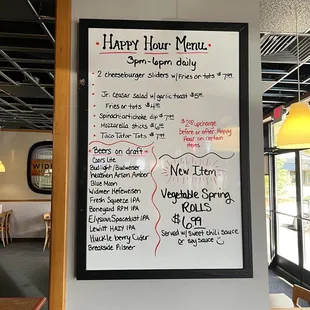 Happy Hour Menu
3pm-6pm daily
2 cheeseburger sliders w/Fries or tots $7.99
Jr. Ceasar salad w/garlic toast $5.99
Fries or tots $4.99
Spinach-artichoke dip $7.99
Mozzarella sticks $6.99
Taco Tator Tots $7.99
$2.00 upcharge
before or after Happy
Hour on certain
items
Beers on draft
Coors Lite
Bud light Budweiser
Blue Moon
Widmer Hefeweizen
Fresh Squeeze IPA
Boneyard RPM IPA
Elysian Spacedust IPA
Lewitt HAZY IPA
Huckleberry Cider
Breakside Pilsner
New Item
Vegetable Spring
ROLLS
$6.99
Served w/ sweet chili sauce
or soy sauce